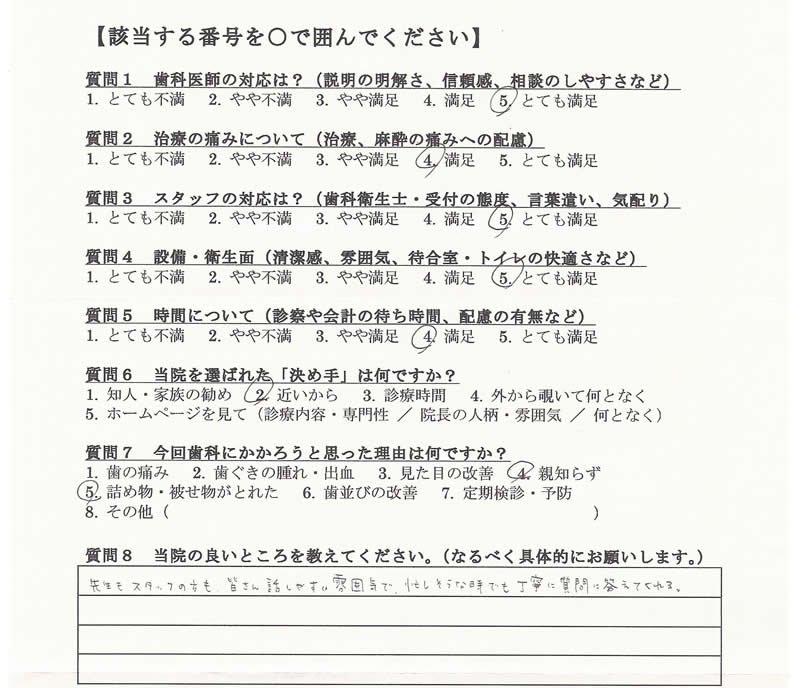 【該当する番号を〇で囲んでください】
質問１　歯科医師の対応は？（説明の明解さ、信頼感、相談のしやすさなど）
1. とても不満　2. やや不満　3. やや満足　4. 満足　5. とても満足
質問２　治療の痛みについて（治療、麻酔の痛みへの配慮）
1. とても不満　2. やや不満　3. やや満足　4. 満足　5. とても満足
質問３　スタッフの対応は？（歯科衛生士・受付の態度、言葉遣い、気配り）
1. とても不満　2. やや不満　3. やや満足　4. 満足　5. とても満足
質問４　設備・衛生面（清潔感、雰囲気、待合室・トイレの快適さなど）
1. とても不満　2. やや不満　3. やや満足　4. 満足　5. とても満足
質問５　時間について（診察や会計の待ち時間、配慮の有無など）
1. とても不満　2. やや不満　3. やや満足　4. 満足　5. とても満足
質問６　当院を選ばれた「決め手」は何ですか？
1. 知人・家族の勧め　2. 近いから　3. 診療時間　4. 外から覗いて何となく
5. ホームページを見て（診療内容・専門性 ／ 院長の人柄・雰囲気 ／ 何となく）
質問７　今回歯科にかかろうと思った理由は何ですか？
1. 歯の痛み　2. 歯ぐきの腫れ・出血　3. 見た目の改善　4. 親知らず
5. 詰め物・被せ物がとれた　6. 歯並びの改善　7. 定期検診・予防
8. その他（　　　　　　　　　　）
質問８　当院の良いところを教えてください。（なるべく具体的にお願いします。）
先生もスタッフの方も、皆さん話しやすい雰囲気で、忙しそうな時でも丁寧に質問に答えてくれる。